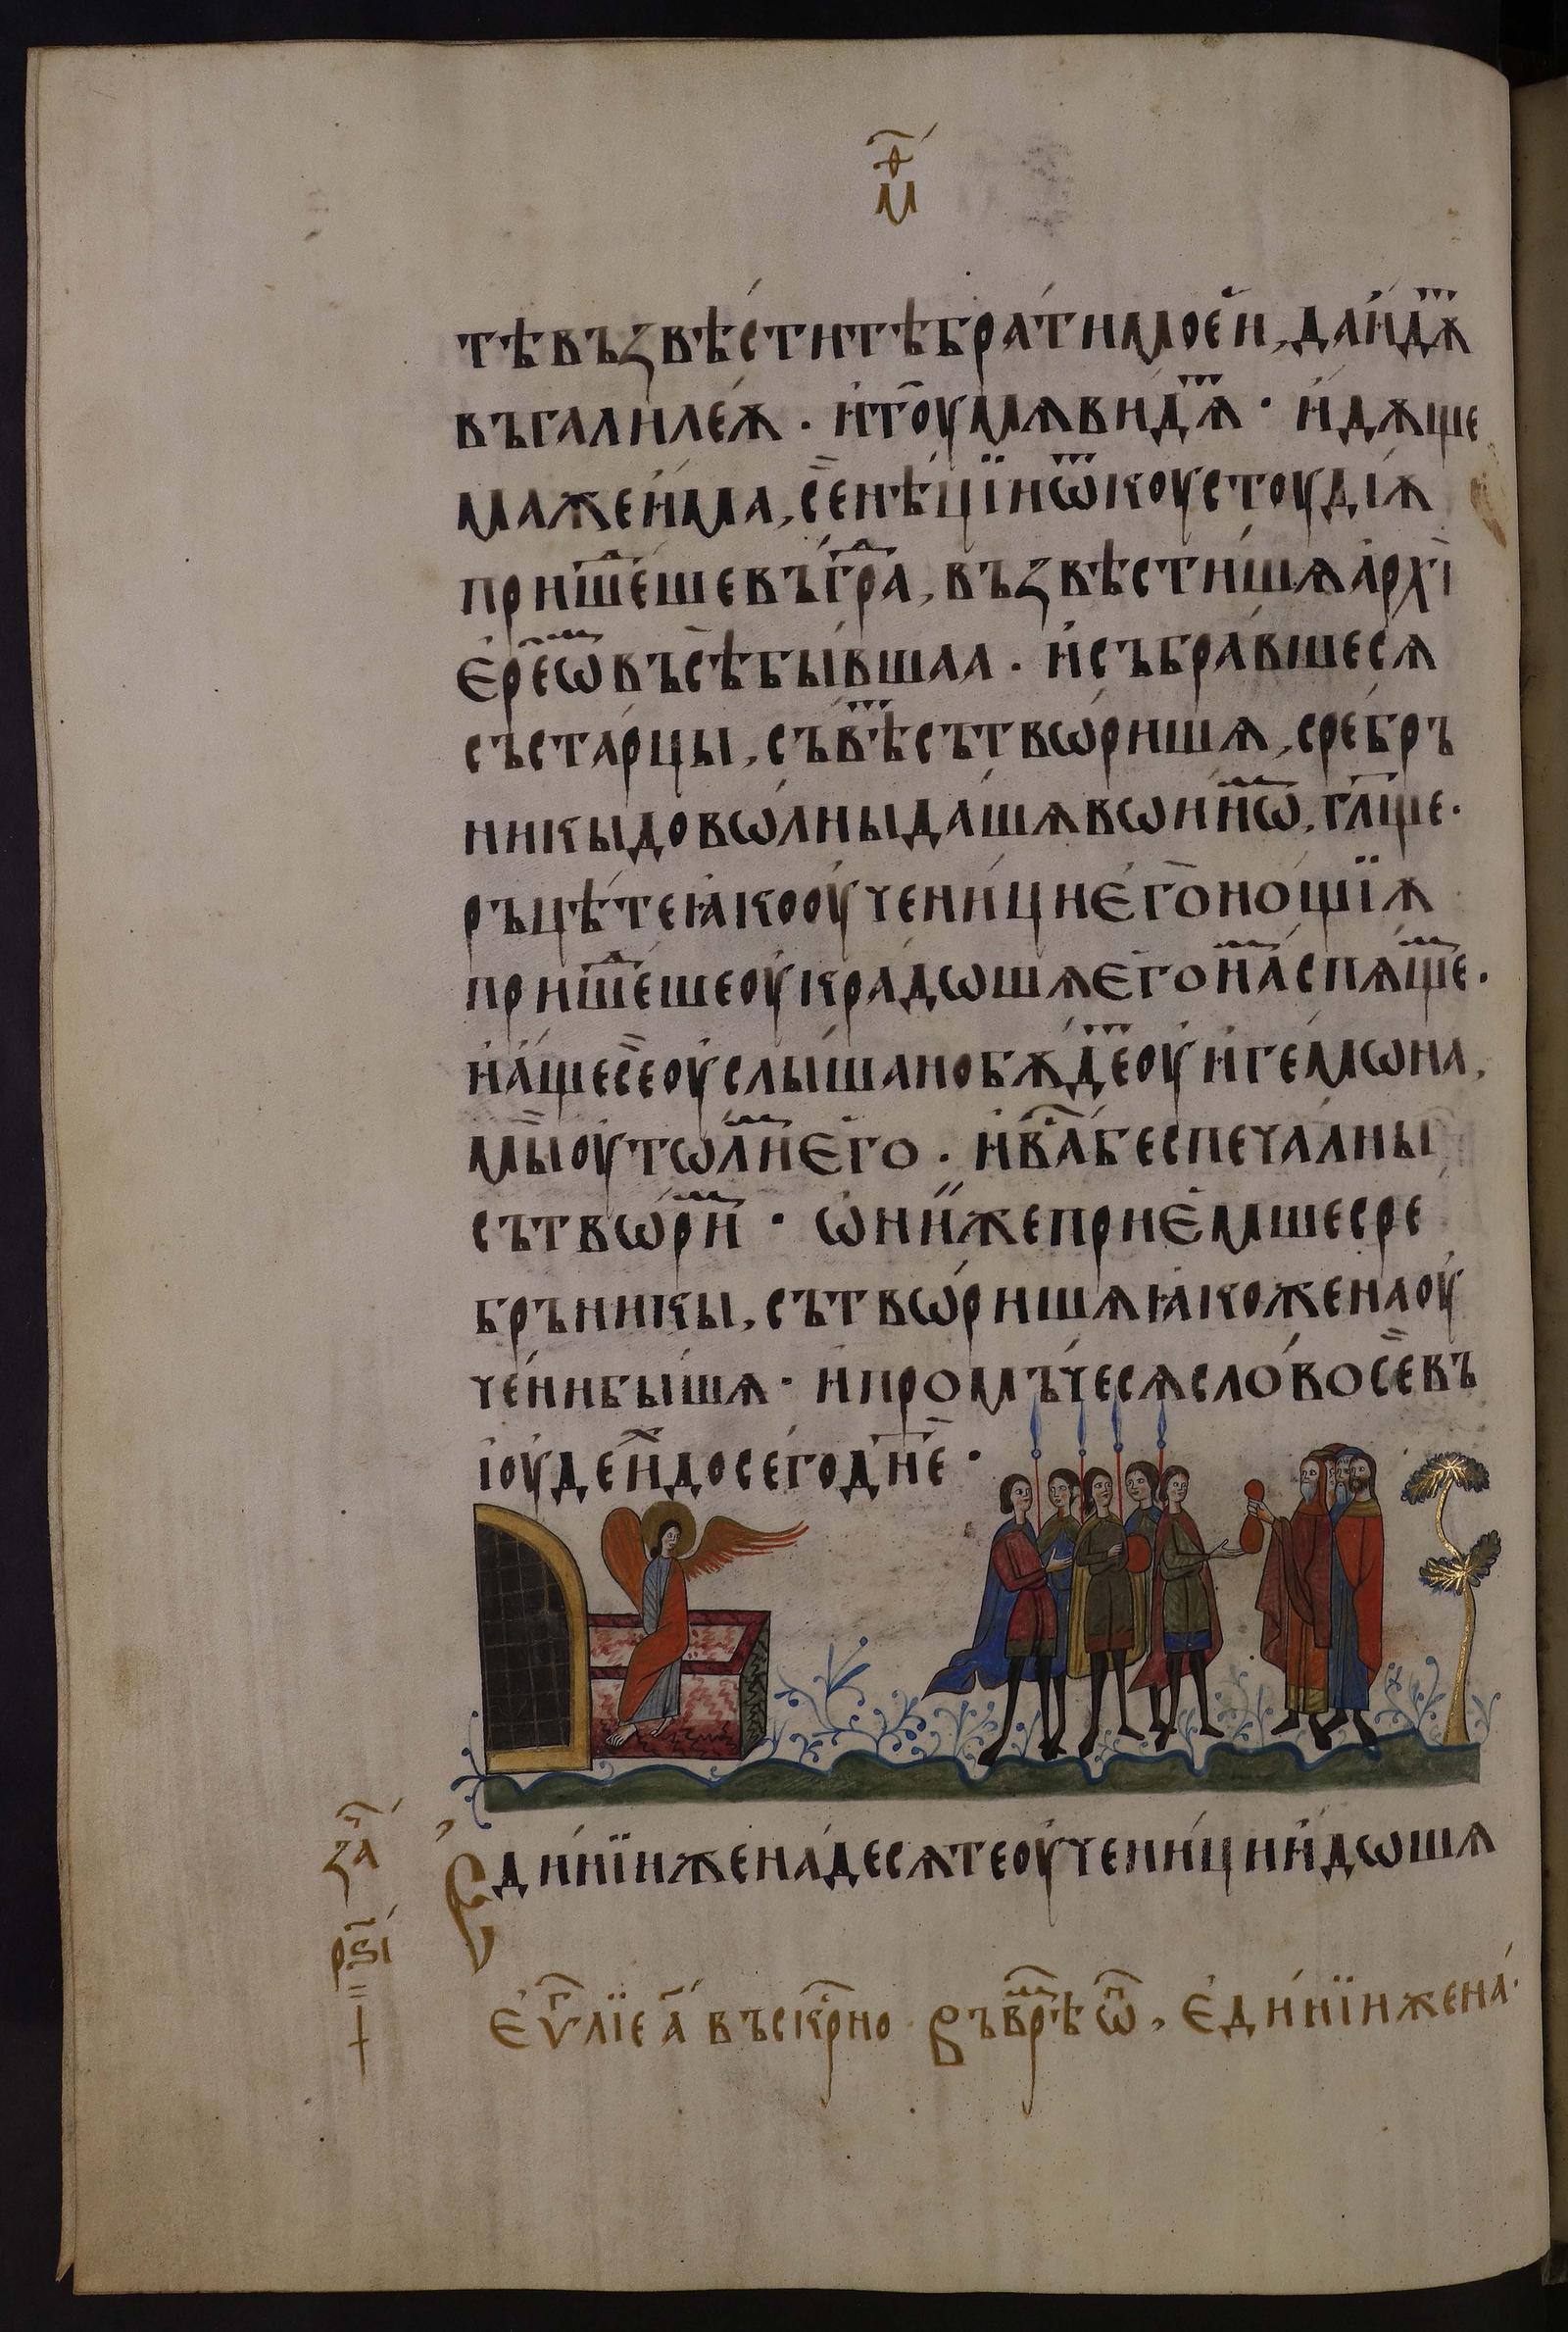 м҃ѳ
тѣ възвѣ́стите братїи моеѝ, да и҆́дѫтъ
въ галиле́ѫ · и҆ тоу̀ мѧ ви́дѧтъ · и҆дѫще
мажеи́ма, се̏ нѣ́цїи ѿ коустѡудїѧ
пришеⷣше въ граⷣ, възвѣсти́шѧ архї
є҆реѡⷨ въсѣ бы́вшаа · и҆ събра́вшесѧ
съ ста́рцы, съвѣⷮ сътвѡ́ришѧ, сре́бръ
никы довѡ́лны да́шѧ вѡ́инѡⷨ, гл҃ще ·
ръцѣ́те ꙗ҆ко оу҆чени́ци є҆го̀ но́щїѫ
пришеⷣше оу҆кра́дѡшѧ є҆го̀ наⷨ спѧщеⷨ ·
и҆ а҆́ще се̏ оу҆слы́шано бѫ́деⷮ оу҆ и҆ге́мѡна,
мы̏ оу҆тѡ́лиⷨ є҆го̀ · и҆ ваⷭ беспеча́лны
сътвѡ́риⷨ · ѡ҆ни́ же прие́мше сре
брьникы, сътвѡ́ришѧ ꙗ҆коже нао҆у
че́ни бы́шѧ · и҆ промъ́чесѧ сло́во се̏ въ
і҆оуде́иⷯ до сего̀ дн҃е ·
заⷱ҇
рѕ҃і
Є҆ди́нїи же на́десѧте оу҆чени́ци и҆дѡшѧ
є҆ѵⷢ҇лїе а҃ въскрⷭ҇но въ врѣⷨ ѡⷩ, є҆ди́нїи же на́ ·